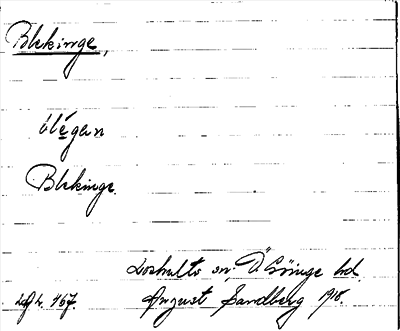 Blekinge,
blégen
Blekinge.
Loshults sn. Ö Göinge hd.
August Sandberg 1918.